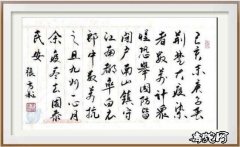 己亥末庚子春
荆楚大疫染
者数万计众
惶恐举国防皆
闭户南山镇守
江南都率白衣
郎中数万抗
之且九州一心月
余疫尽去国泰
民安